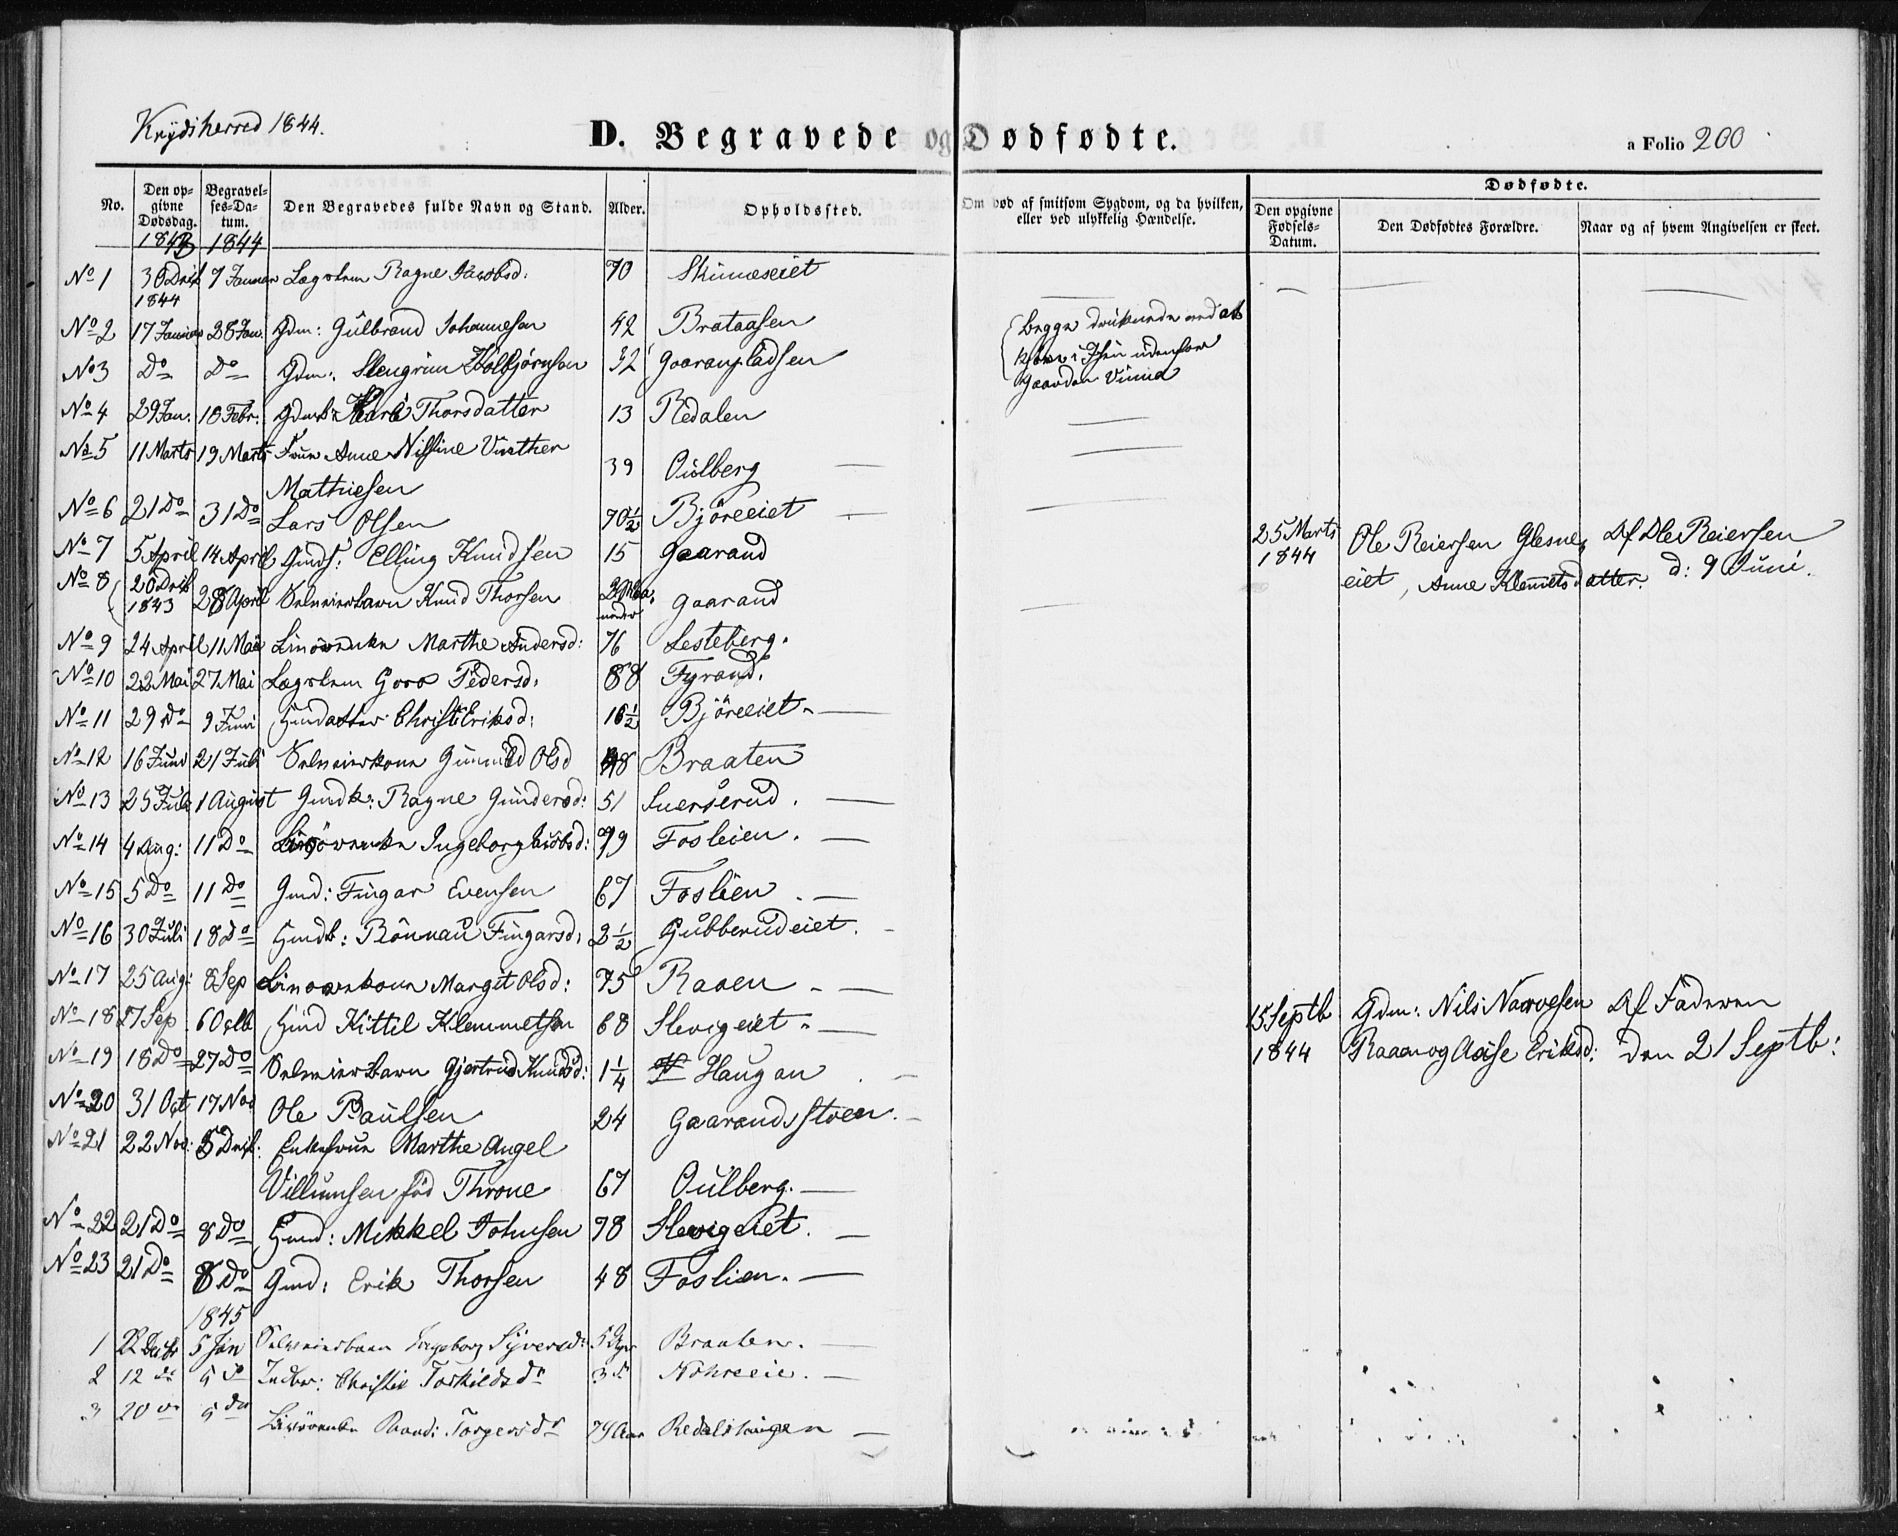 Krydsherred 1844.
D. Begravede og Dødfødte.
a Folio 200
No.
Den opgivne Dødsdag.
Begravelses-Datum.
Den Begravedes fulde Navn og Stand.
Alder.
Opholdssted.
Om død af smitsom Sygdom, og da hvilken, eller ved ulykkelig Hændelse.
Dødfødte.
Den opgivne Fødsels-Datum.
Den Dødfødtes Forældre.
Naar og af hvem Angivelsen er skeet.
1843 1844
No 1 30 7 Januar Lægslem Ragne Jacobsd: 70
1844
No 2 17 Januar 28 Jan. Gdm: Gulbrand Johannesen 42 Brataasen
No 3 Do Do Gdm: Stengrim 32 Gaarandpladsen
Begge druknede ved at
kjøre i Isen udenfor
Gaarden
No 4 29 Jan. 18 Febr. Thorsdatter 13 Redalen
No 5 11 Marts 19 Marts Frue Anne Nilsine Vinther
Mathiesen 39 Oulberg
No 6 21 Do 31 Do Lars Olsen 70½ Björeeiet
No 7 5 April 14 April Elling Knudsen 15 Gaarand
No 8 1843 28 April Selveierbarn Knud Thorsen Gaarand
25 Marts 1844 Ole Reiersen Glesne, eiet, Anne Klemetsdatter. Af Ole Reiersen d: 9 Juni.
No 9 24 April 11 Mai Marthe Andersd: 76 Lesteberg.
No 10 22 Mai 27 Mai Lægslem Goro Pedersd: 88 Fyrand.
No 11 29 Do 9 Juni Eriksd: 16½ Björeeiet
No 12 16 Juni 21 Juli Selveierkone Gunnild Olsd 48 Braaten
No 13 25 Juli 1 August Gmdk: Ragne Gundersd: 51
No 14 4 Aug: 11 Do Ingeborg Jacobsd: 79 Fosleien.
No 15 5 Do 11 Do Gmd: Fingar Evensen 67 Foslien
No 16 30 Juli 18 Do Hmdb: Rönnau Fingarsd: 2½ Gubberudeiet.
No 17 25 Aug: 8 Sep Margit Olsd: 75 Raaen
No 18 Sep 6 Kittil Klemmetsen 68 Slevigeiet
15 Septb 1844 Gdm: Nils Narvesen Raaen og Aase Eriksd: Af Faderen Den 21 Septb:
No 19 18 Do 27 Do Selveierbarn Gjertrud Knudsd: 1¼ Haugan
No 20 31 Oct 17 Nov Ole Paulsen 24 Gaarandsstuen.
No 21 22 Nov: 5 Enkefrue Marthe Angel
Villumsen föd Throne 67 Oulberg.
No 22 21 Do 8 Do Hmd: Mikkel Johnsen 78 Slevigeiet.
No 23 21 Do 8 Do Gmd: Erik Thorsen 48 Foslien.
1845
1 22 5 Jan Selveierbarn Ingeborg Syversd: Braaten.
2 12 5 Torkildsdr
3 20 5 do Torgersdr 79 Aar